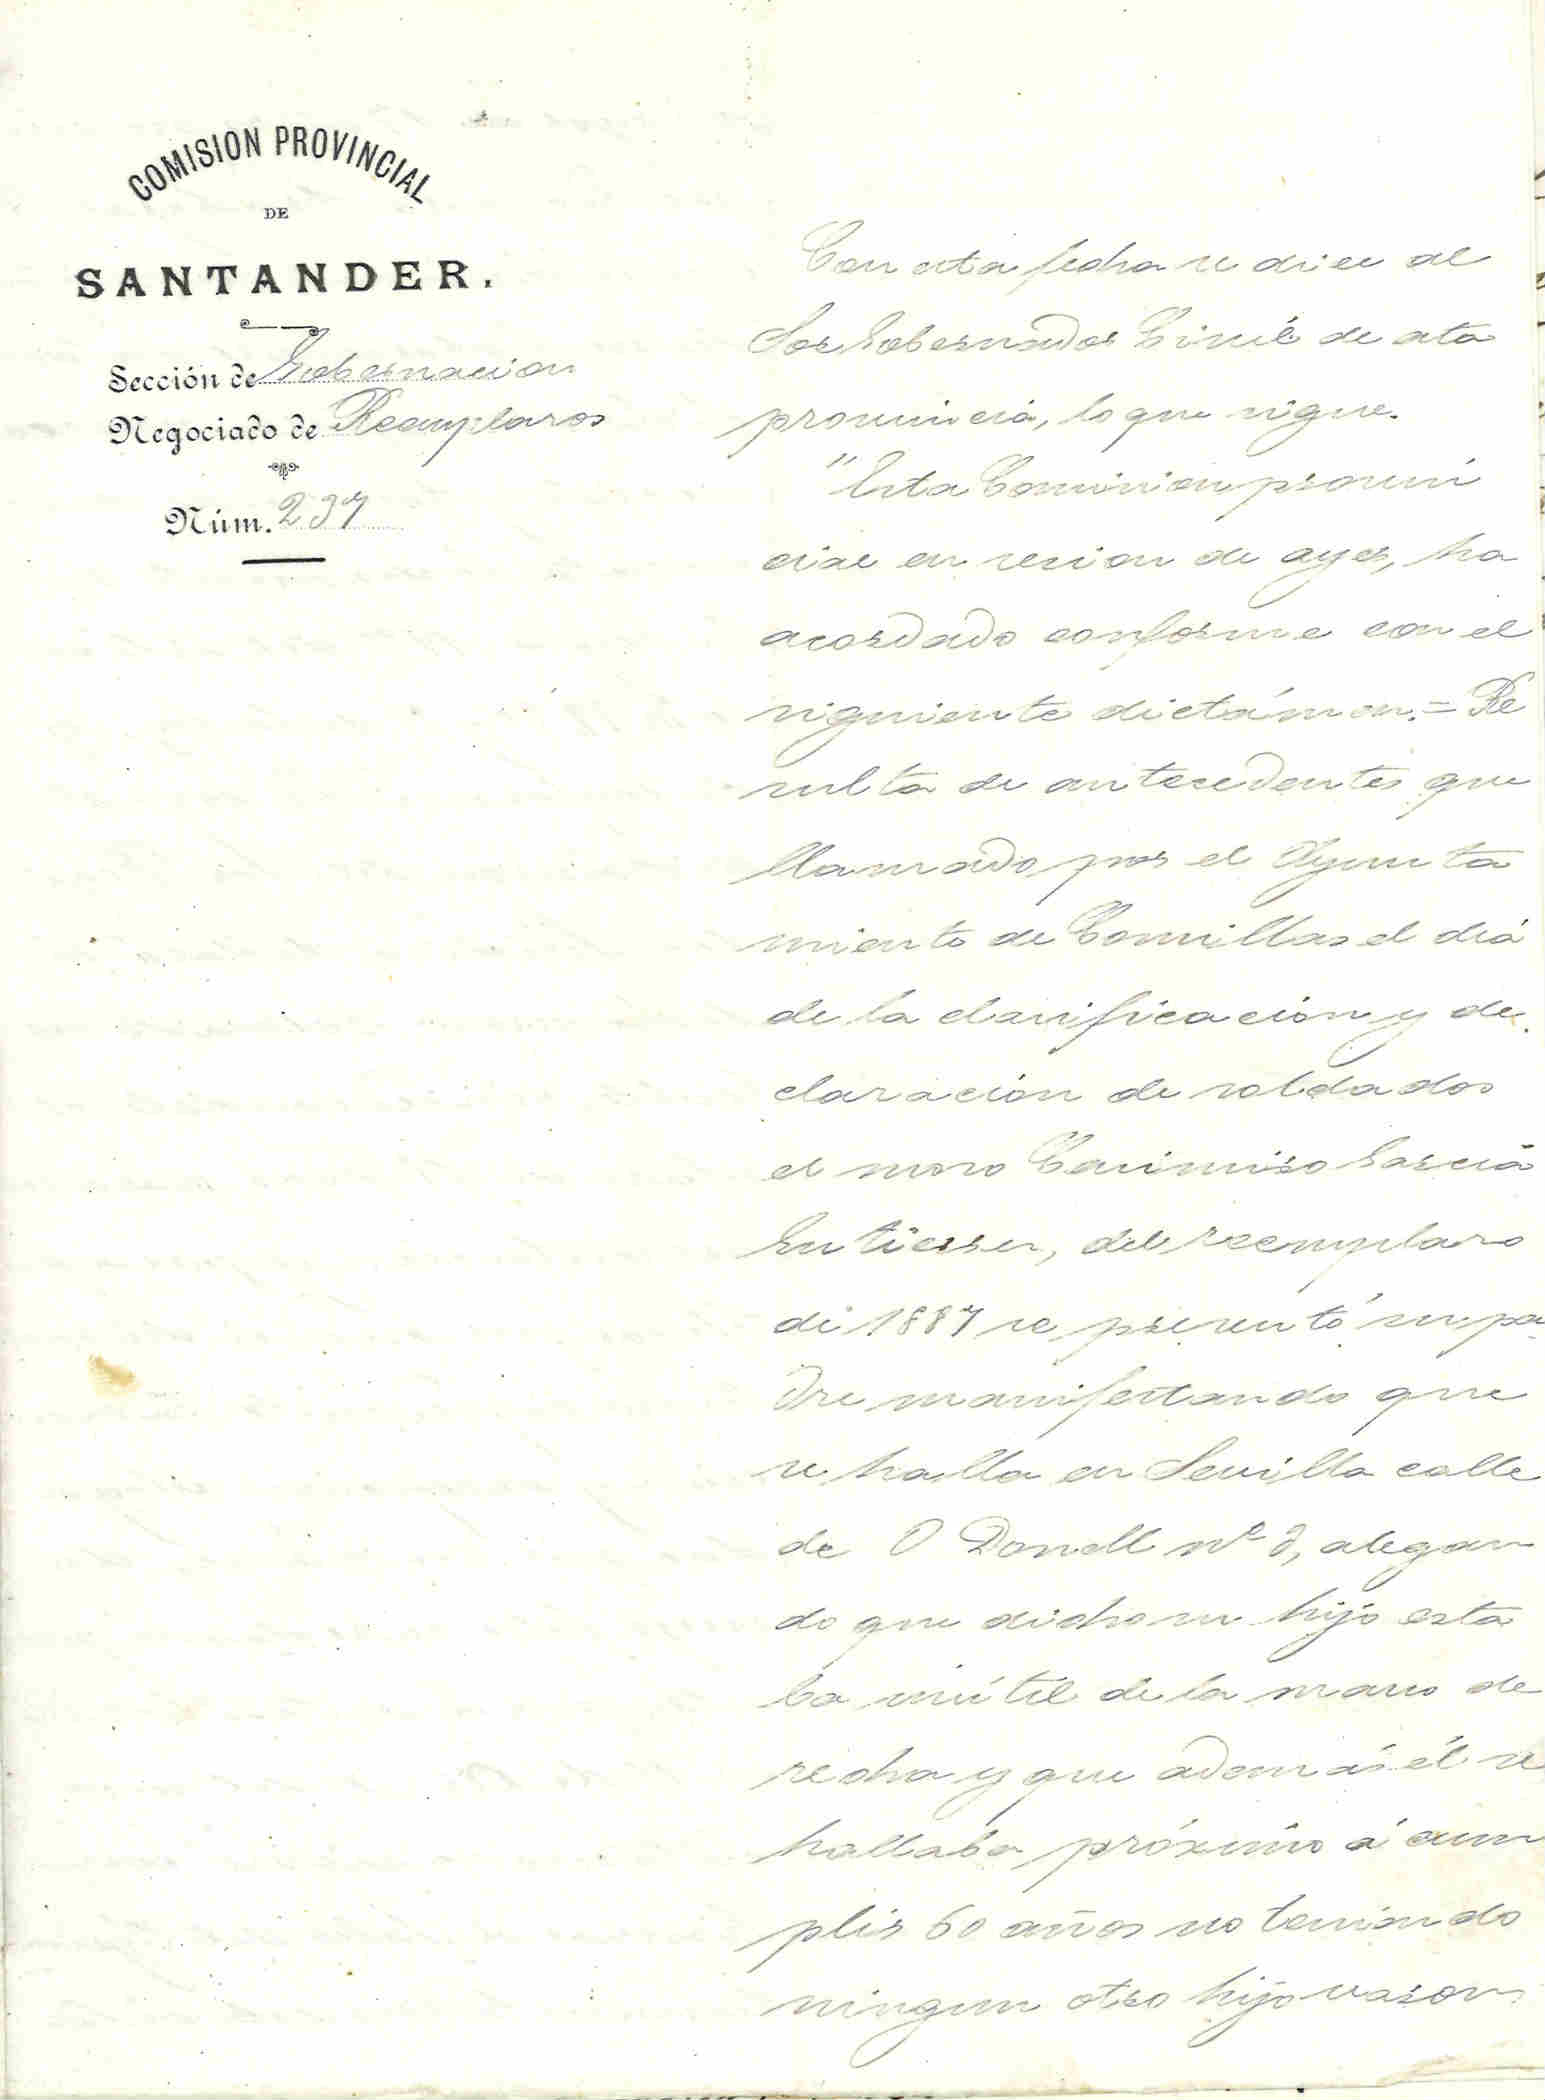 COMISION PROVINCIAL
DE
SANTANDER.
Sección de Gobernacion
Negociado de Reemplazos
Núm. 237
Con esta fecha se dice al
Sor Gobernador Civil de esta
provincia, lo que sigue.
"Esta Comision provin
cial en sesion de ayer, ha
acordado conforme con el
siguiente dictámen.= Re
sulta de antecedentes que
llamado por el Ayunta
miento de Comillas el dia
de la clasificación y de
claración de soldados
el mozo Casimiro Garcia
Gutierrez, del reemplazo
de 1887 se presentó su pa
dre manifestando que
se halla en Sevilla calle
de O Donell nº 3, alegan
do que dicho su hijo esta
ba inútil de la mano de
recha y que además él se
hallaba próximo á cum
plir 60 años no teniendo
ningun otro hijo varon.